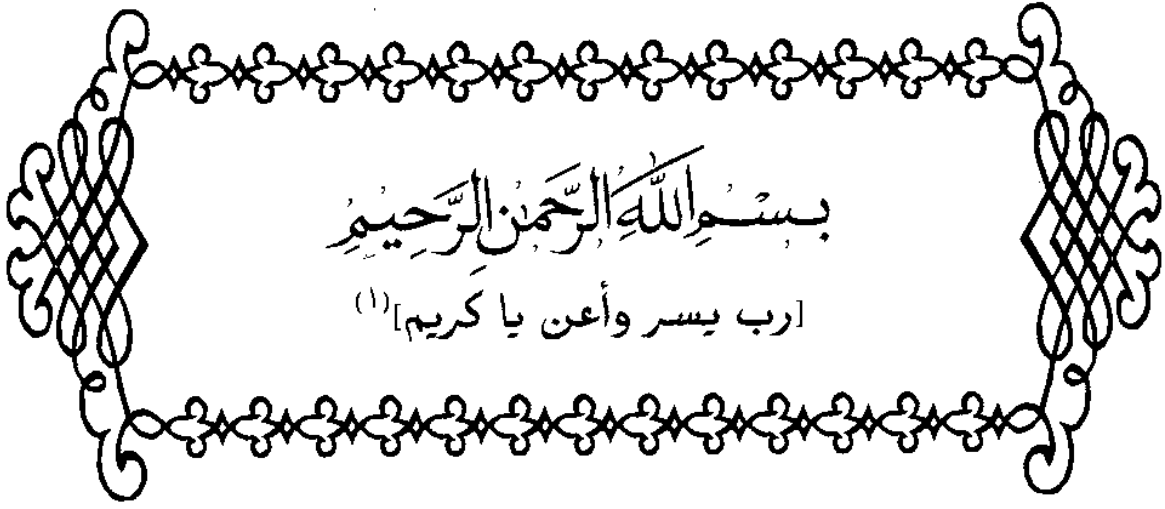 بِسْمِ اللَّهِ الرَّحْمٰنِ الرَّحِيمِ
[رب يسر وأعن يا كريم](١)